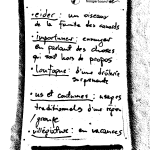 • eider : un oiseau
de la famille des canards
• importuner : ennuyer
en parlant des choses
qui sont hors de propos
• loufoque : d'une drôlerie
surprenante
• us et coutumes : usages
traditionnels d'une région
groupe
• villégiature : en vacances